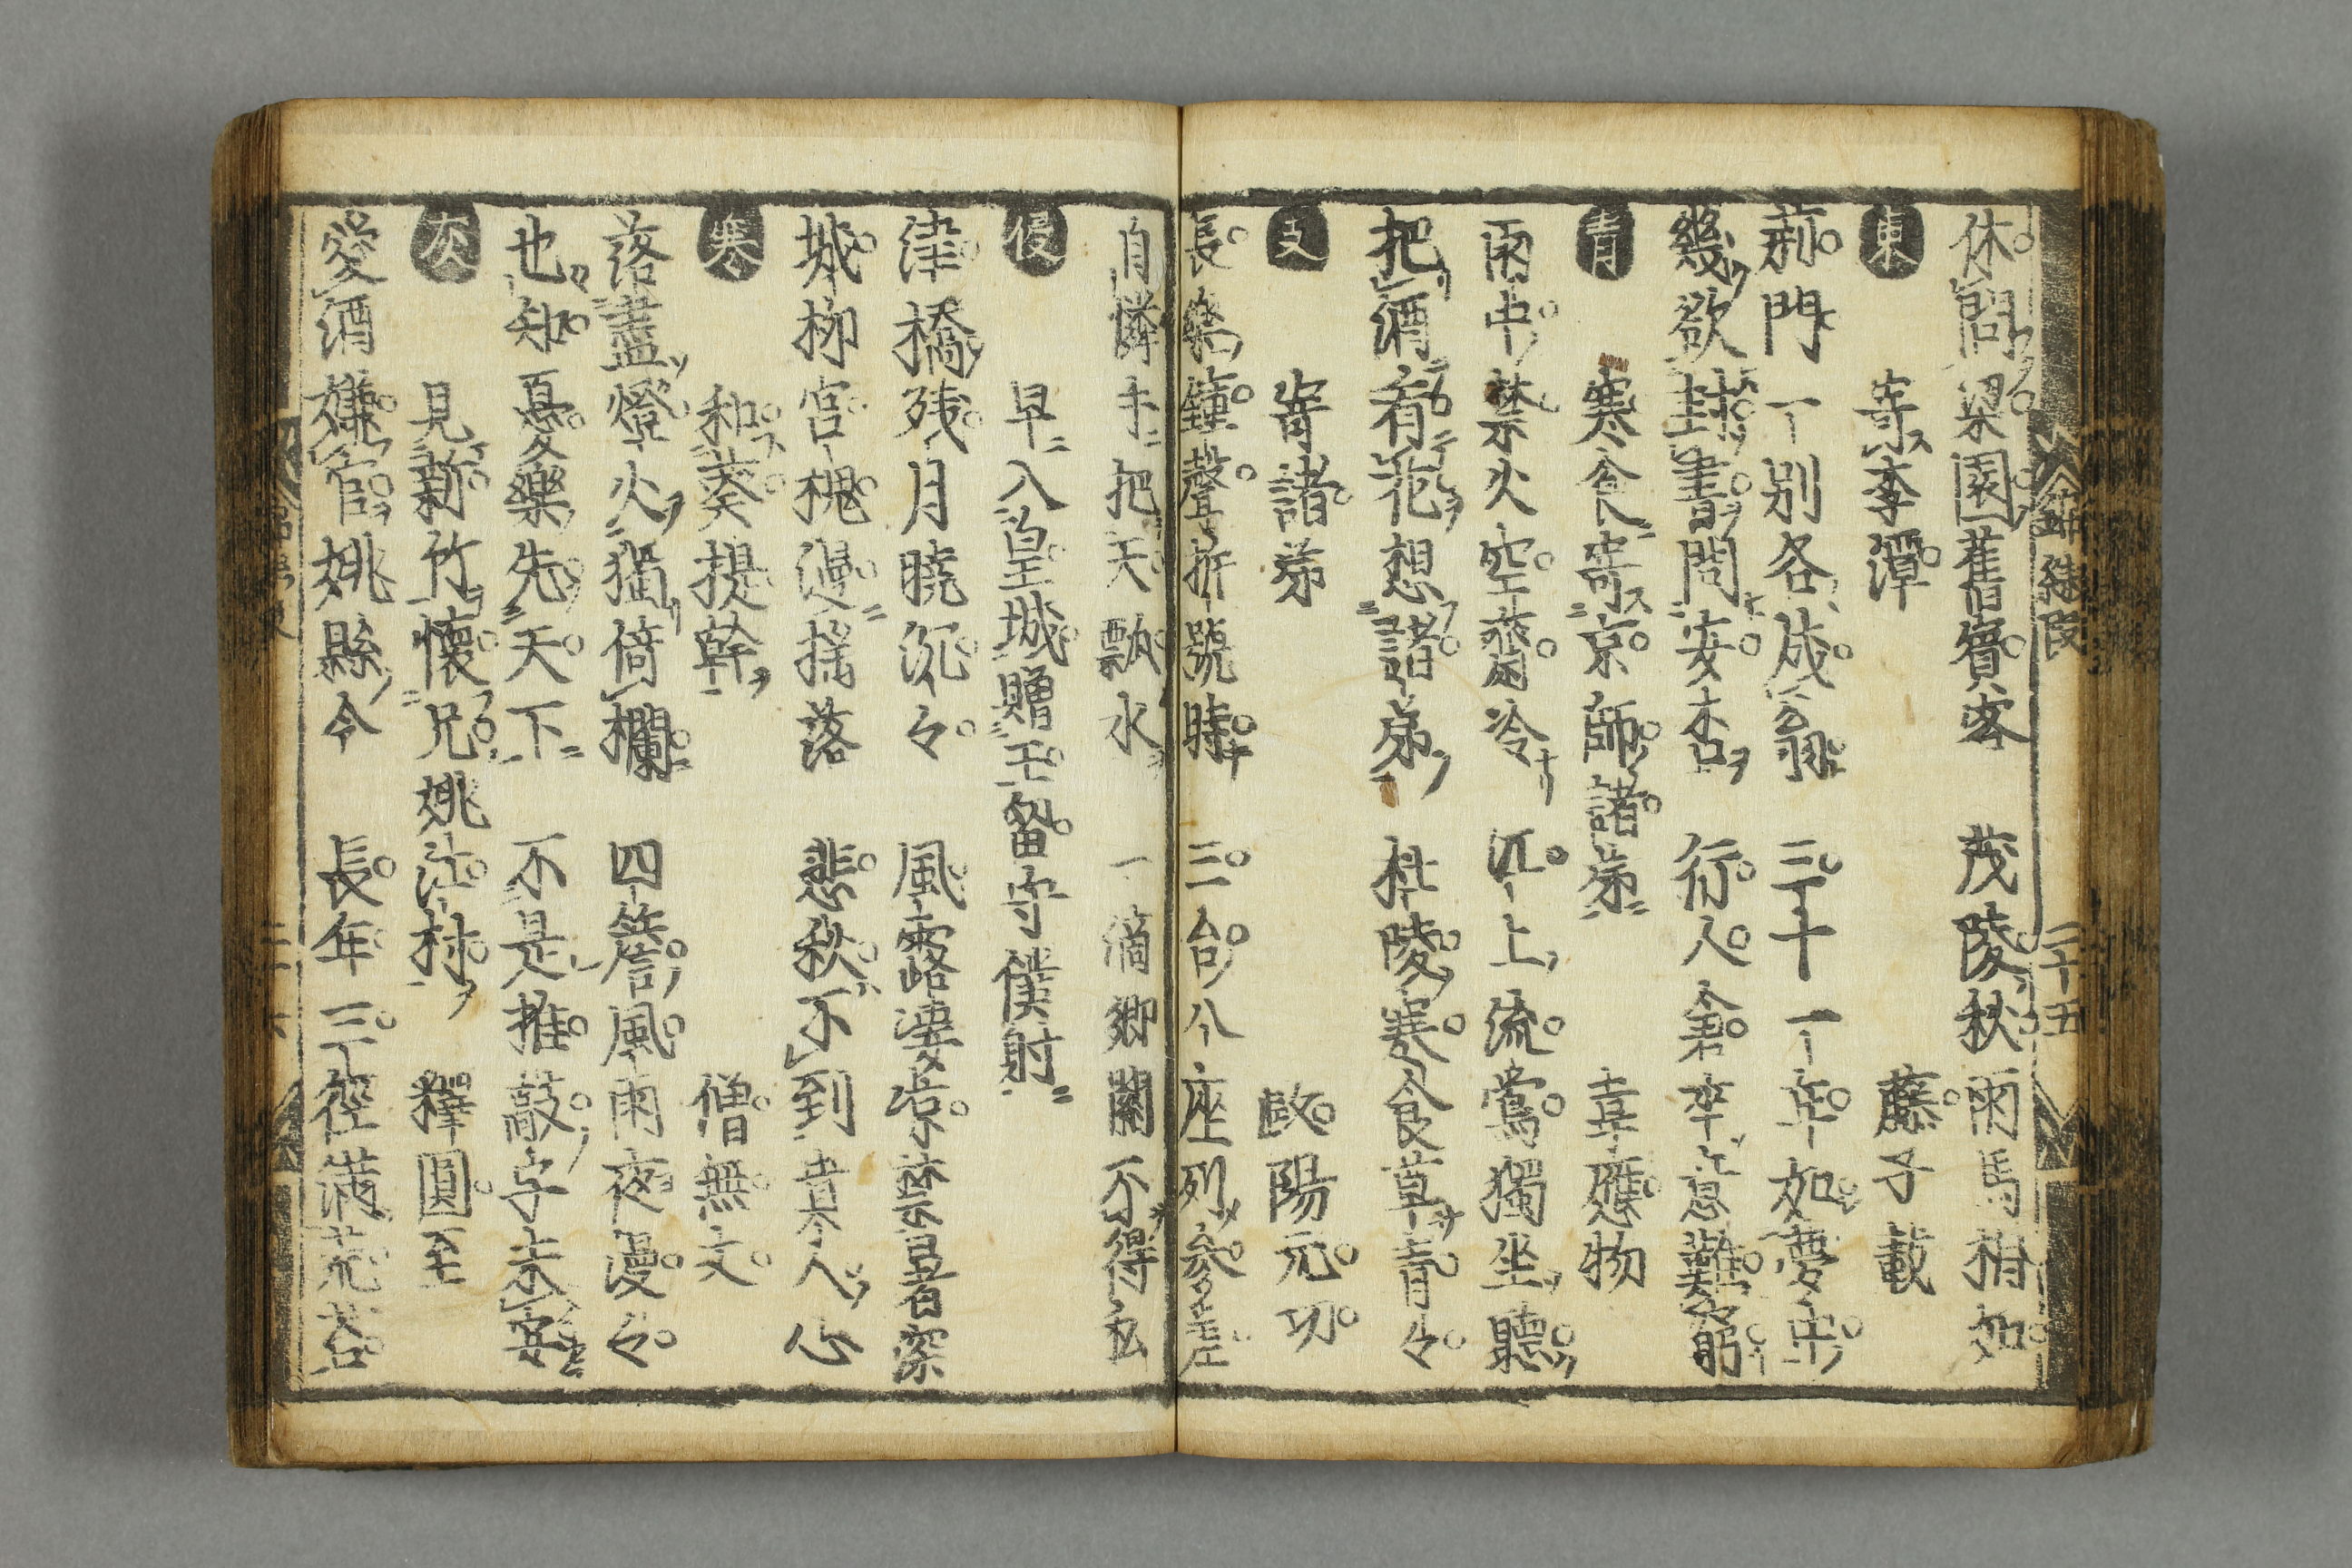 錦繡段 二十五
休問梁園舊賓客 茂陵秋雨病相如
東 寄李潭 藤子載
荊門一別各成翁 三十一年如夢中
幾欲封書問安否 行人倉卒意難窮
青 寒食寄京師諸弟 韋應物
雨中禁火空齋冷 江上流鶯獨坐聽
把酒看花想諸弟 杜陵寒食草青々
支 寄諸弟 歐陽元功
長樂鐘聲拆號時 三台八座列參差
自憐手把天瓢水 一滴鄉關不得
侵 早入皇城贈王留守僕射
津橋残月曉沉々 風露凄凉禁署深
城柳宮槐謾搖落 悲秋不到貴人心
寒 和葵提幹 僧無文
落盡燈火猶倚欄 四簷風雨夜漫々
也知憂樂先天下 不是推敲字未安
灰 見新竹懐兄姚江村 釋圓至
愛酒嫌官姚縣令 長年三徑満苔